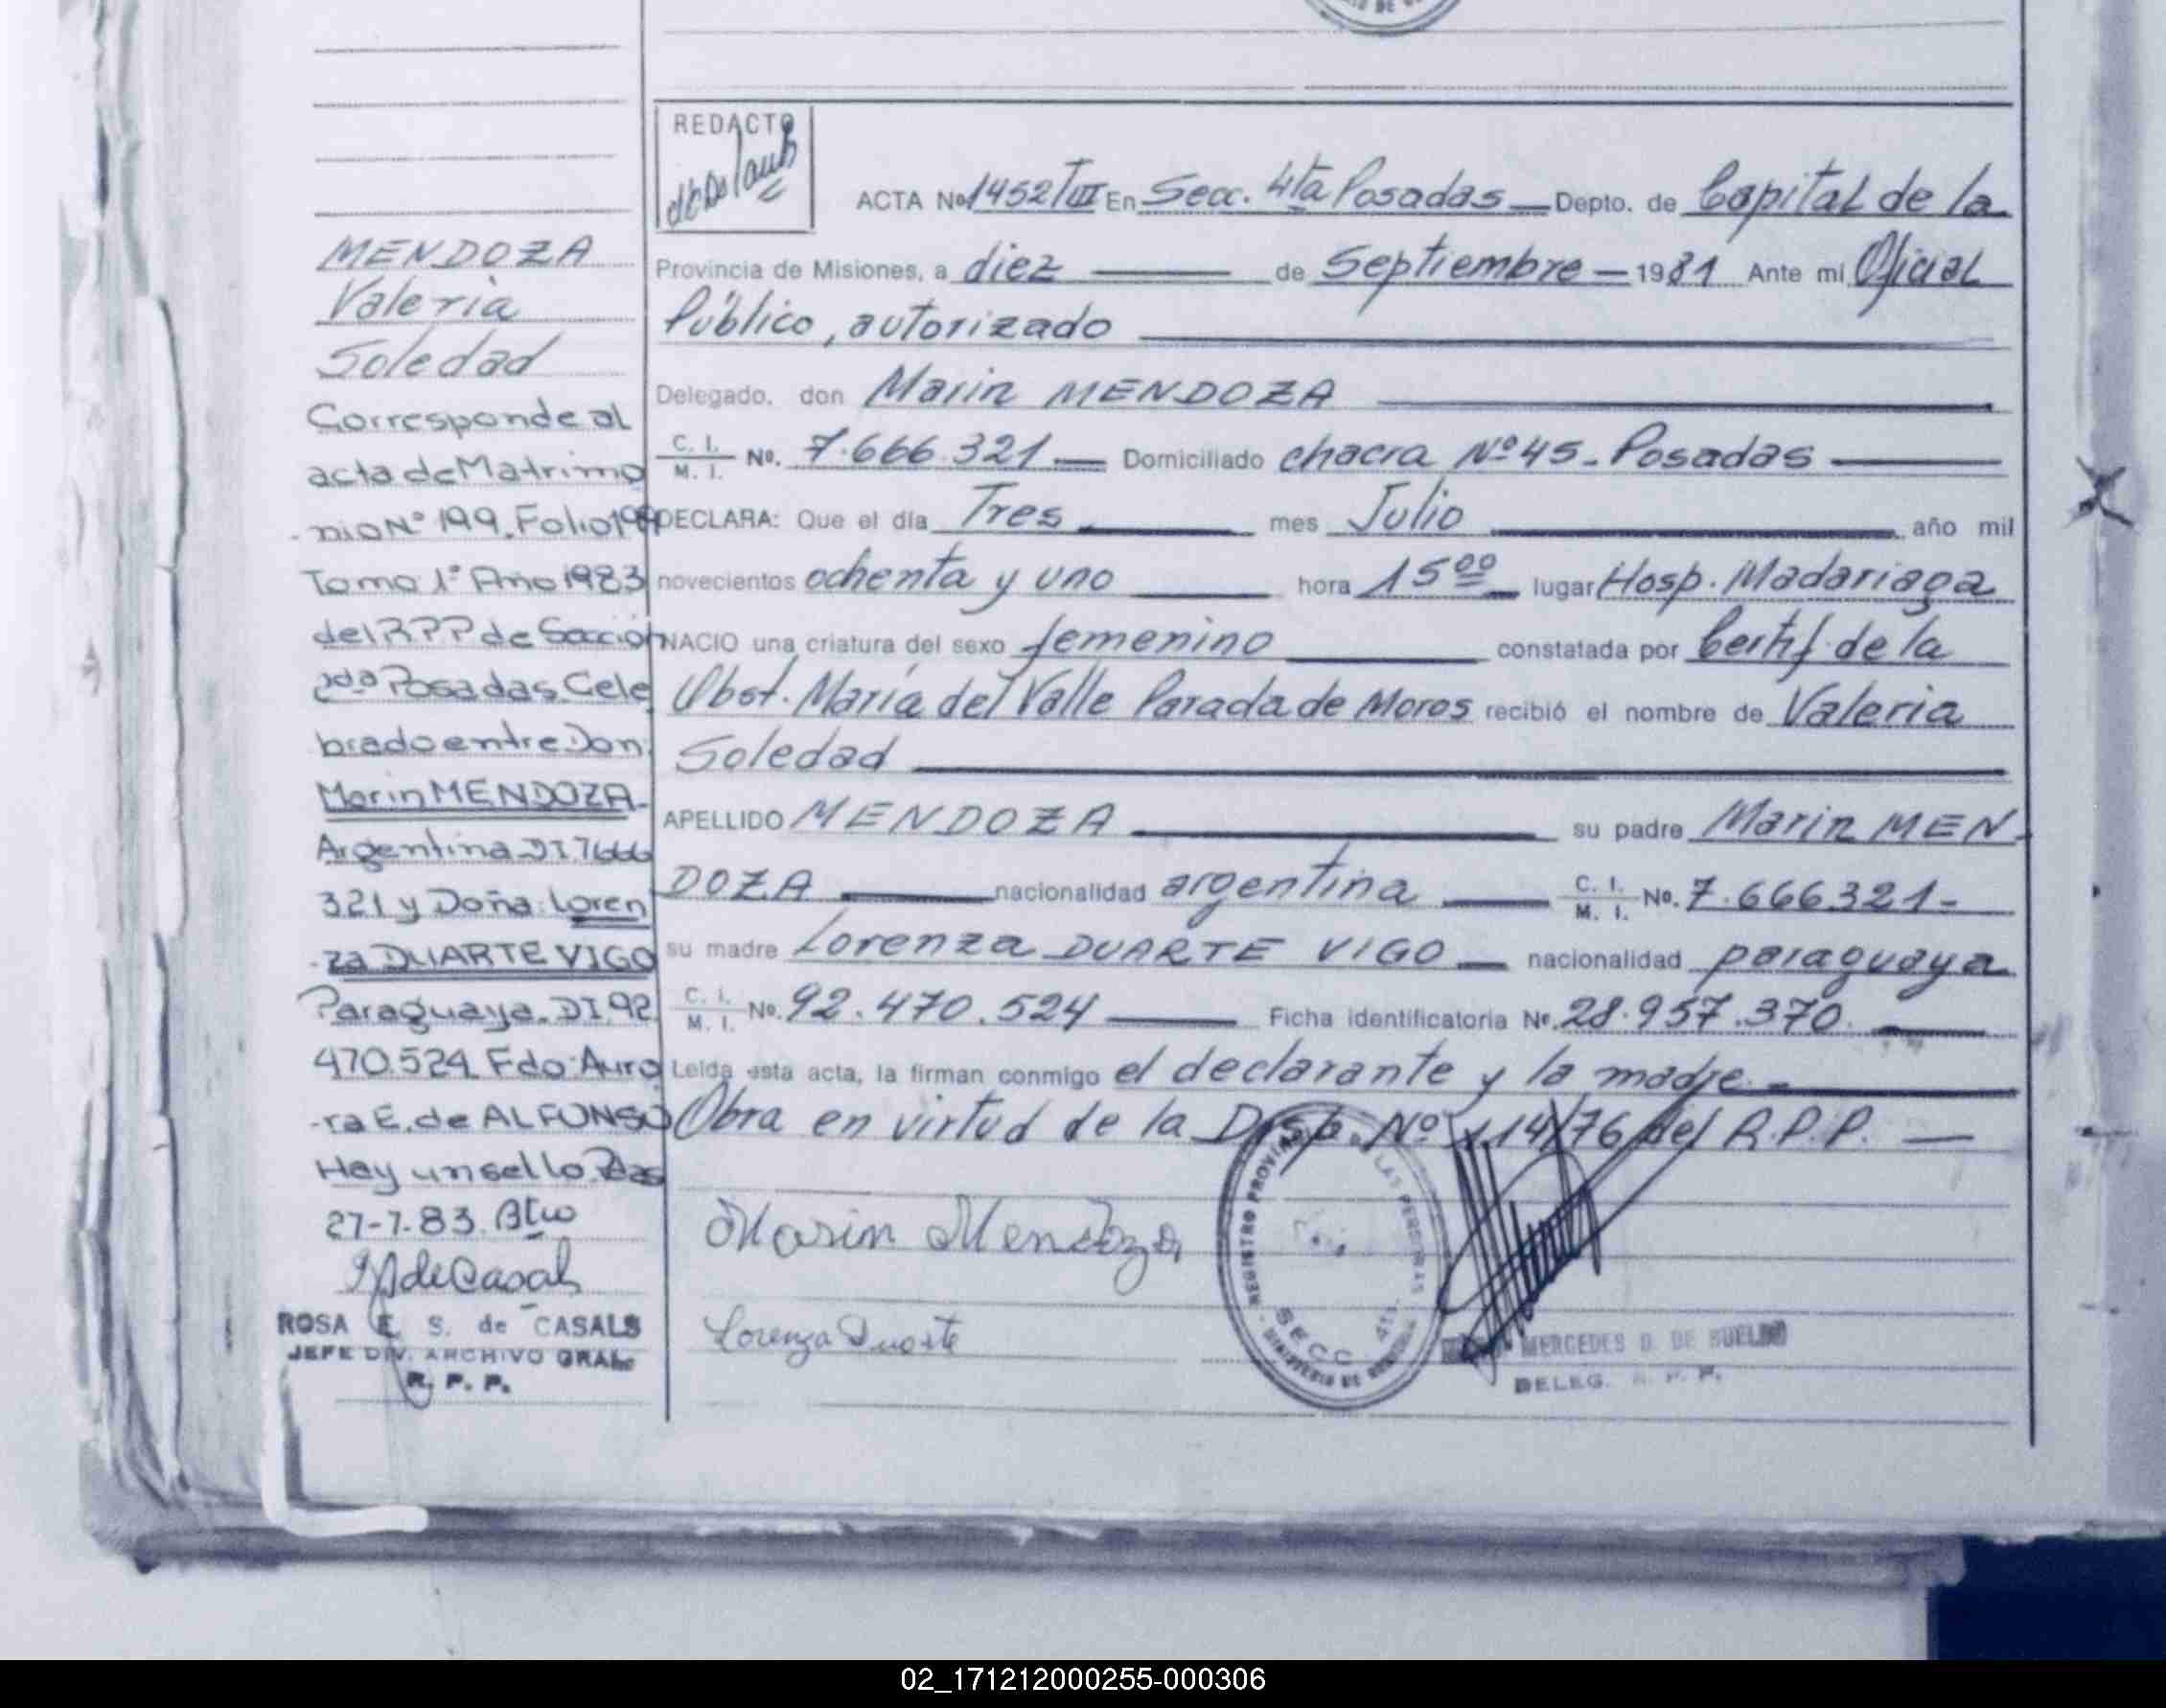 MENDOZA
Valeria
Soledad
Corresponde al
acta de Matrimo
-nio Nº 199. Folio
Tomo 1º Año 1983
del R.P.P de Sección
2da Posadas. Cele
brado entre Don
Marin MENDOZA-
Argentina DI. 7666
321 y Doña: Loren
-za DUARTE VIGO
Paraguaya. DI. 92
470.524. Fdo: Auro
-ra E. de ALFONSO
Hay un sello. Pdas
27-7-83.
de Casals
ROSA E. S. de CASALS
JEFE DIV. ARCHIVO GRAL.
R. P. P.
REDACTO
ACTA Nº 1452/TIII En Secc. 4ta Posadas — Depto. de Capital de la
Provincia de Misiones, a diez — de Septiembre — 1981 Ante mi Oficial
Público, autorizado
Delegado, don Marin MENDOZA
C. I. M. I. Nº. 7.666.321 — Domiciliado chacra Nº 45 - Posadas
DECLARA: Que el día Tres mes Julio año mil
novecientos ochenta y uno hora 15 00 lugar Hosp. Madariaga
NACIO una criatura del sexo femenino constatada por Certif. de la
Obst. María del Valle Parada de Moros recibió el nombre de Valeria
Soledad
APELLIDO MENDOZA su padre Marin MEN-
DOZA nacionalidad argentina C. I. M. I. Nº. 7.666321-
su madre Lorenza DUARTE VIGO — nacionalidad paraguaya
C. I. M. I. Nº. 92.470.524 Ficha identificatoria Nº. 28.957.370.
Leída esta acta, la firman conmigo el declarante y la madre.-
Obra en virtud de la Disp. Nº 114/76 del R.P.P.
Marin Mendoza
Lorenza Duarte
REGISTRO PROVINCIAL DE LAS PERSONAS
SECC. 4ta.
MERCEDES D. DE
DELEG. R. P. P.
02_171212000255-000306